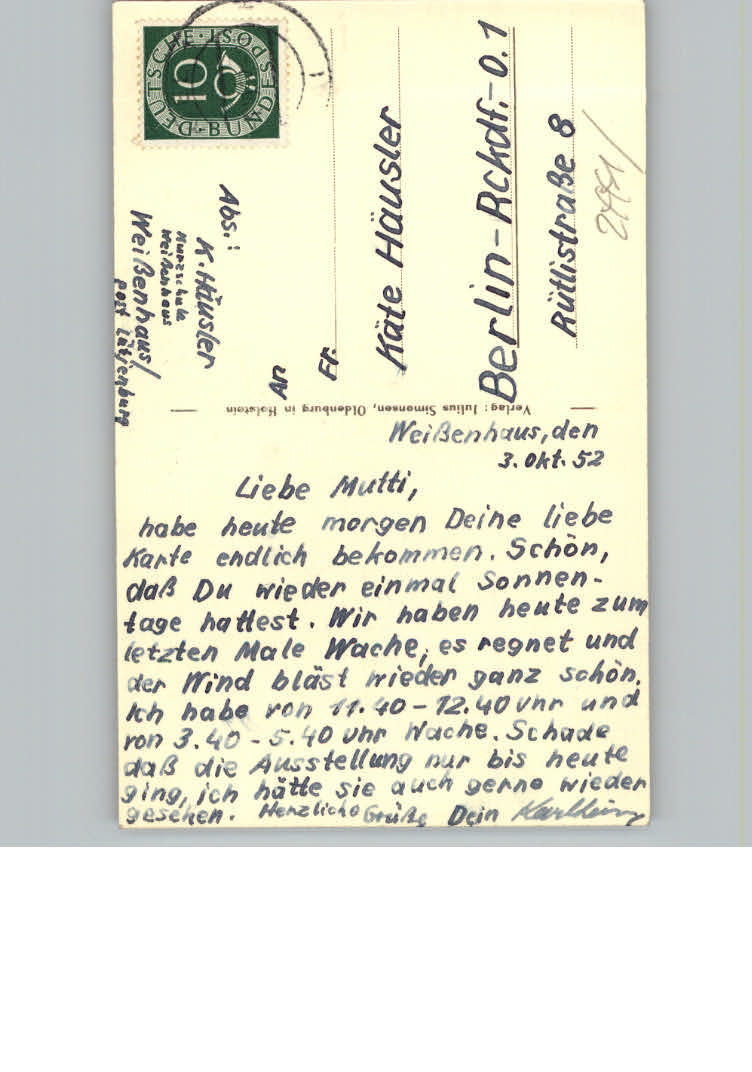 DEUTSCHE · BUNDESPOST
10
Abs.:
K. Häusler
Kurzschule
Weißenhaus
Weißenhaus/
Post Lütjenburg
An
Fr.
Käte Häusler
Berlin-Rckdf.-O.1
Rütlistraße 8
Verlag: Julius Simonsen, Oldenburg in Holstein
Weißenhaus, den
3. Okt. 52
Liebe Mutti,
habe heute morgen Deine liebe
Karte endlich bekommen. Schön,
daß Du wieder einmal Sonnen-
tage hattest. Wir haben heute zum
letzten Male Wache, es regnet und
der Wind bläst wieder ganz schön.
Ich habe von 11.40 - 12.40 Uhr und
von 3.40 - 5.40 Uhr Wache. Schade
daß die Ausstellung nur bis heute
ging, ich hätte sie auch gerne wieder
gesehen. Herzliche Grüße Dein Karlheinz